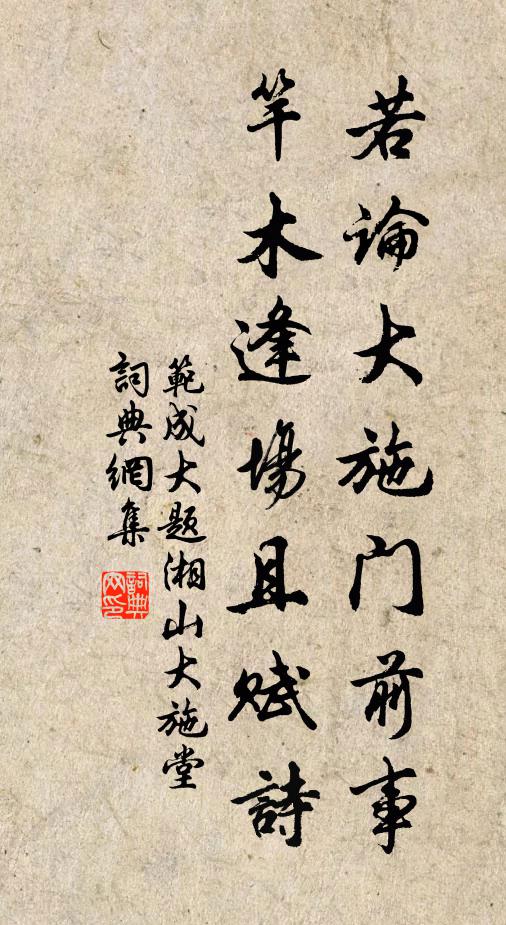 若論大施门前事
竿木逢場且赋詩
範成大题湘山大施堂
詞典網集
詞典网印